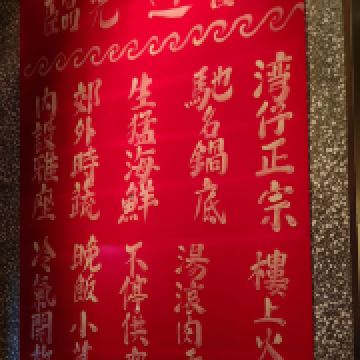 湾仔正宗 樓上火
馳名鍋底 湯滾肉
生猛海鮮 不停供
郊外時蔬 晚飯小
內設雅座 冷氣開